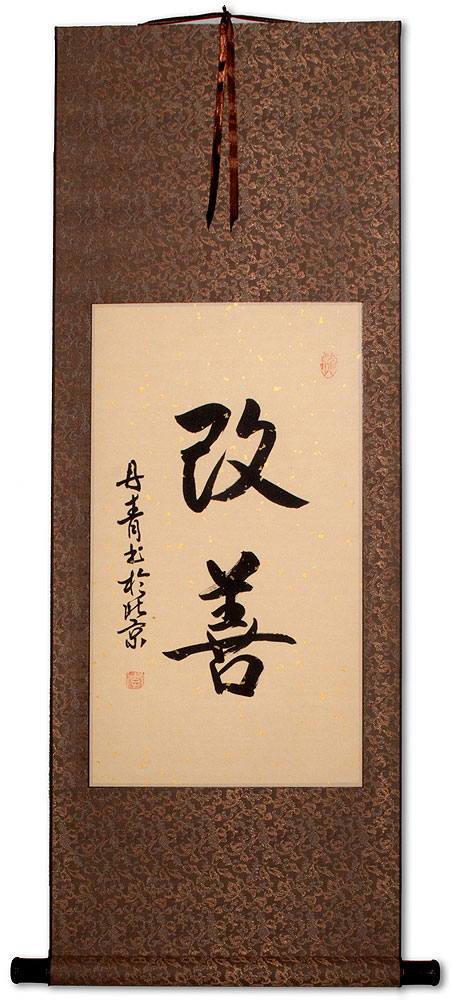 改善
丹青书於北京